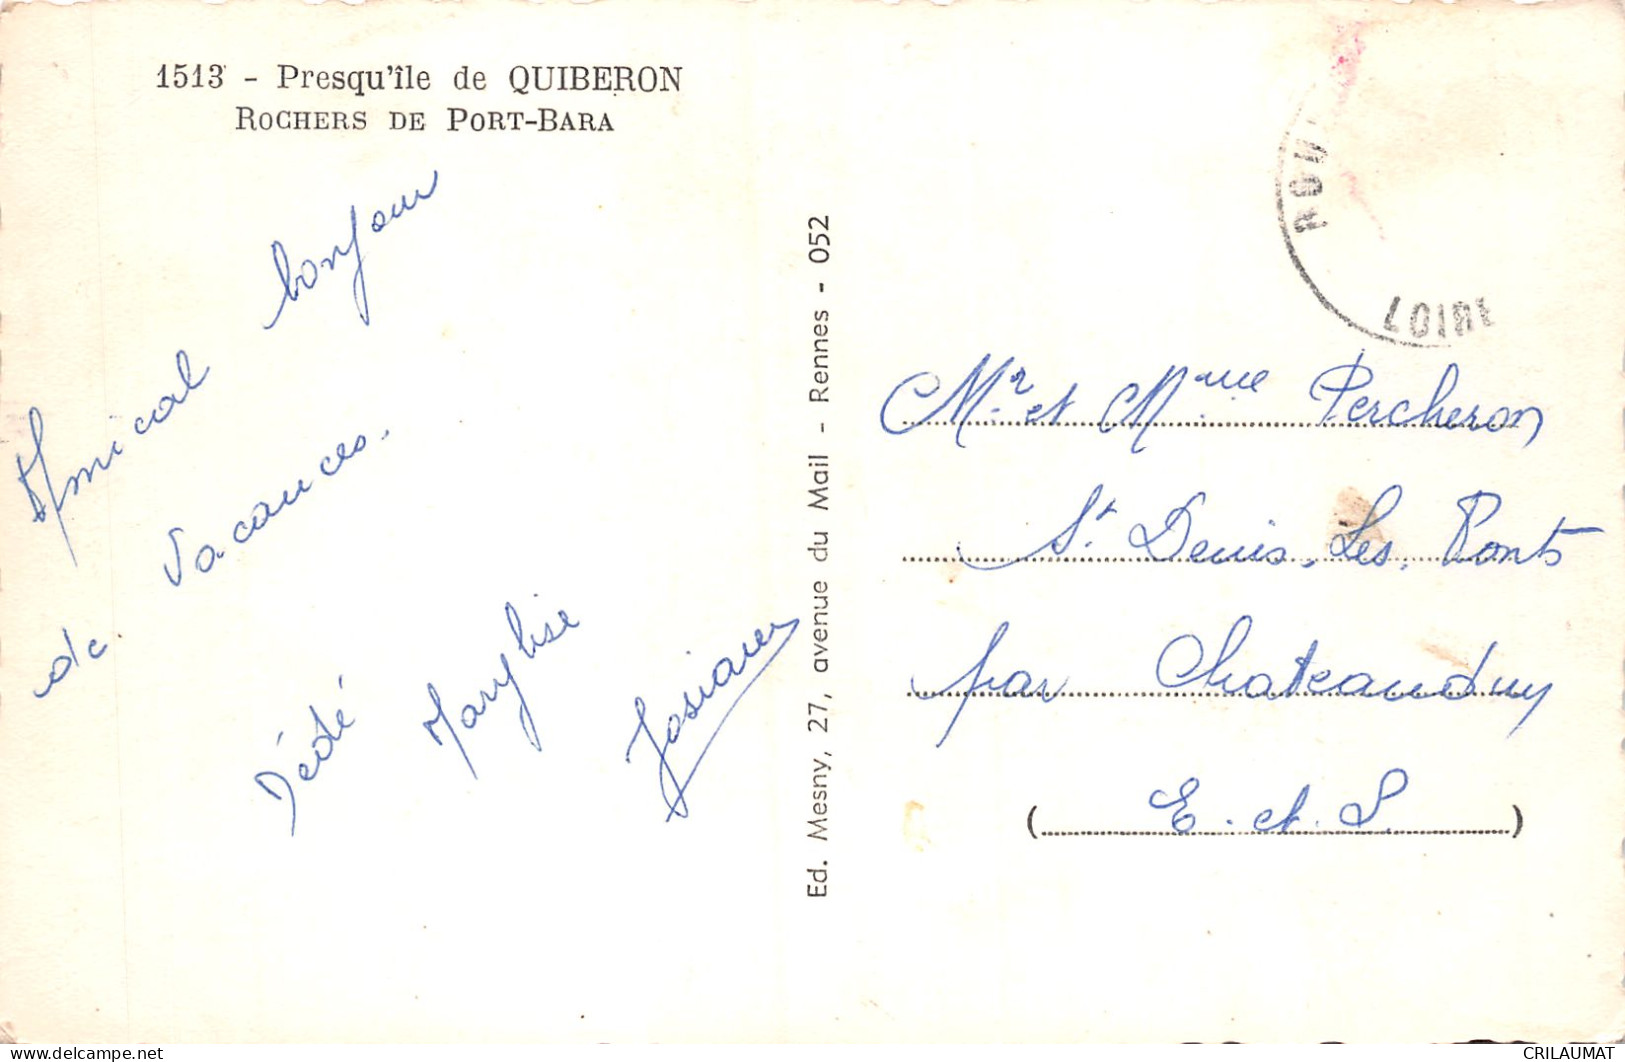 1513 - Presqu'île de QUIBERON
ROCHERS DE PORT-BARA
Amical bonjour
de Vacances.
Dédé Marylise Josiane
Ed. Mesny, 27, avenue du Mail - Rennes - 052
LOIRE
Mr et Mme Percheron
St. Denis. Les. Ponts
par Chateaudun
( E. et. L )
CRILAUMAT